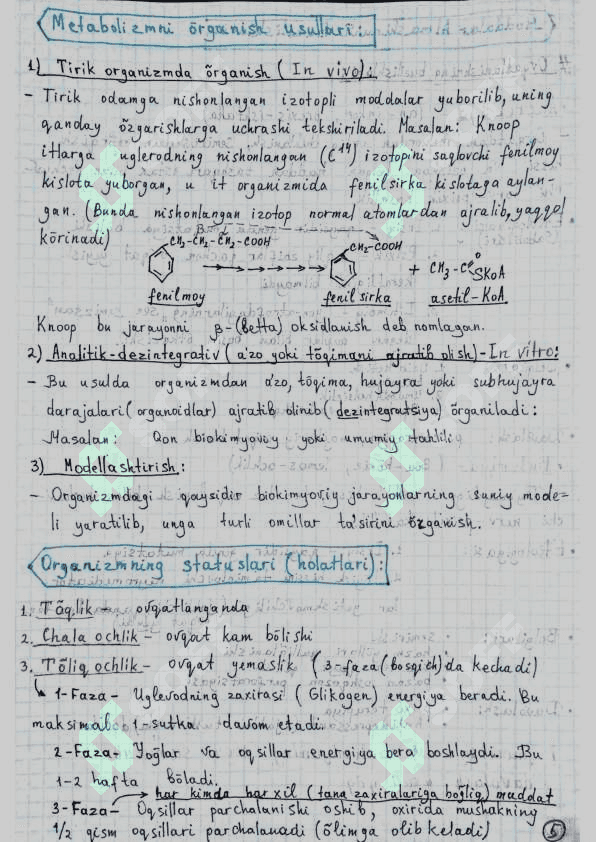 Metabolizmni õrganish usullari:
1) Tirik organizmda õrganish (In vivo):
- Tirik odamga nishonlangan izotopli moddalar yuborilib, uning
qanday õzgarishlarga uchrashi tekshiriladi. Masalan: Knoop
itlarga uglerodning nishonlangan (C¹⁴) izotopini saqlovchi fenilmoy
kislota yuborgan, u it organizmida fenilsirka kislotaga aylan-
gan. (Bunda nishonlangan izotop normal atomlardan ajralib, yaqqol
kõrinadi)
β
CH₂-CH₂-CH₂-COOH → → → → → → CH₂-COOH + CH₃-C O SKoA
fenilmoy fenilsirka asetil-KoA
Knoop bu jarayonni β-(betta) oksidlanish deb nomlagan.
2) Analitik-dezintegrativ (a'zo yoki tõqimani ajratib olish)-In vitro:
- Bu usulda organizmdan a'zo, tõqima, hujayra yoki subhujayra
darajalari (organoidlar) ajratib olinib (dezintegratsiya) õrganiladi:
Masalan: Qon biokimyoviy yoki umumiy tahlili
3) Modellashtirish:
- Organizmdagi qaysidir biokimyoviy jarayonlarning suniy mode=
li yaratilib, unga turli omillar ta'sirini õrganish.
Organizmning statuslari (holatlari):
1. Tõqlik - ovqatlanganda
2. Chala ochlik - ovqat kam bõlishi
3. Tõliq ochlik - ovqat yemaslik (3-faza (bosqich)da kechadi)
1-Faza - Uglevodning zaxirasi (Glikogen) energiya beradi. Bu
maksimal 1-sutka davom etadi.
2-Faza - Yoğlar va oqsillar energiya bera boshlaydi. Bu
1-2 hafta bõladi.
har kimda har xil (tana zaxiralariga boğliq) muddat
3-Faza - Oqsillar parchalanishi oshib, oxirida mushakning
1/2 qism oqsillari parchalanadi (õlimga olib keladi) 5